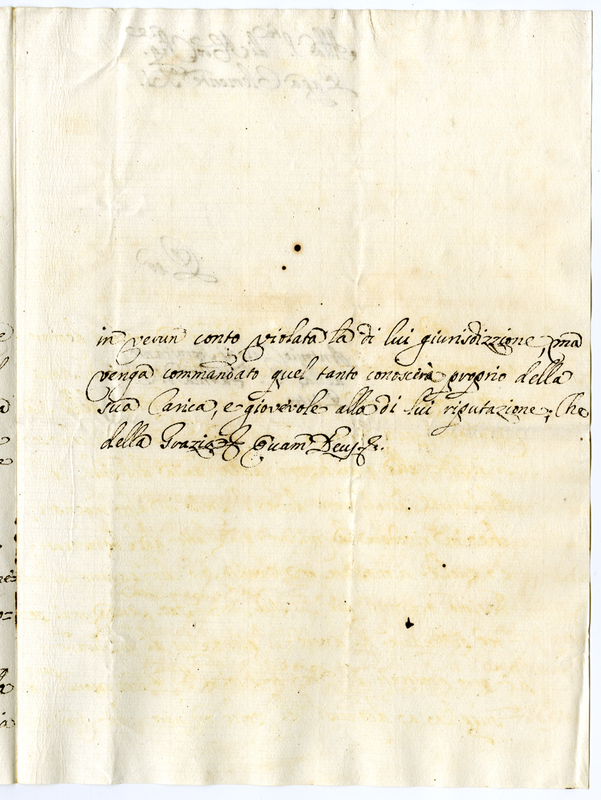 in verun conto violata la di lui giurisdizzione, ma
venga commandato quel tanto conoscerà proprio della
sua Carica, e giovevole alla di lui riputazione; Che
della Grazia &c. Quam Deus &c.